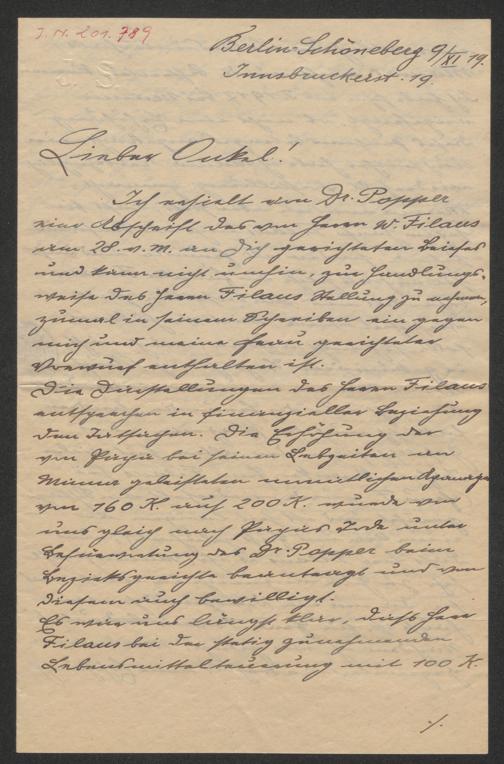 J. N. 201.789
Berlin-Schöneberg 9/XI 19.
Innsbruckerst. 19.
Lieber Onkel!
Ich erhielt von Dr. Popper
eine Abschrift des von Herrn W. Filaus
am 28. v. M. an Dich gerichteten Briefes
und kann nicht umhin, zur Handlungs-
weise des Herrn Filaus Stellung zu nehmen,
zumal in seinem Schreiben ein gegen
mich und meine Frau gerichteter
Vorwurf enthalten ist.
Die Darstellungen des Herrn Filaus
entsprechen in finanzieller Beziehung
den Tatsachen. Die Erhöhung der
von Papa bei seinen Lebzeiten an
Minna geleisteten monatlichen Apanage
von 160 K. auf 200 K. wurde von
uns gleich nach Papas Tode unter
Befürwortung des Dr. Popper beim
Bezirksgerichte beantragt und von
diesem auch bewilligt.
Es war uns längst klar, dass Herr
Filaus bei der stetig zunehmenden
Lebensmittelteuerung mit 100 K.
./.